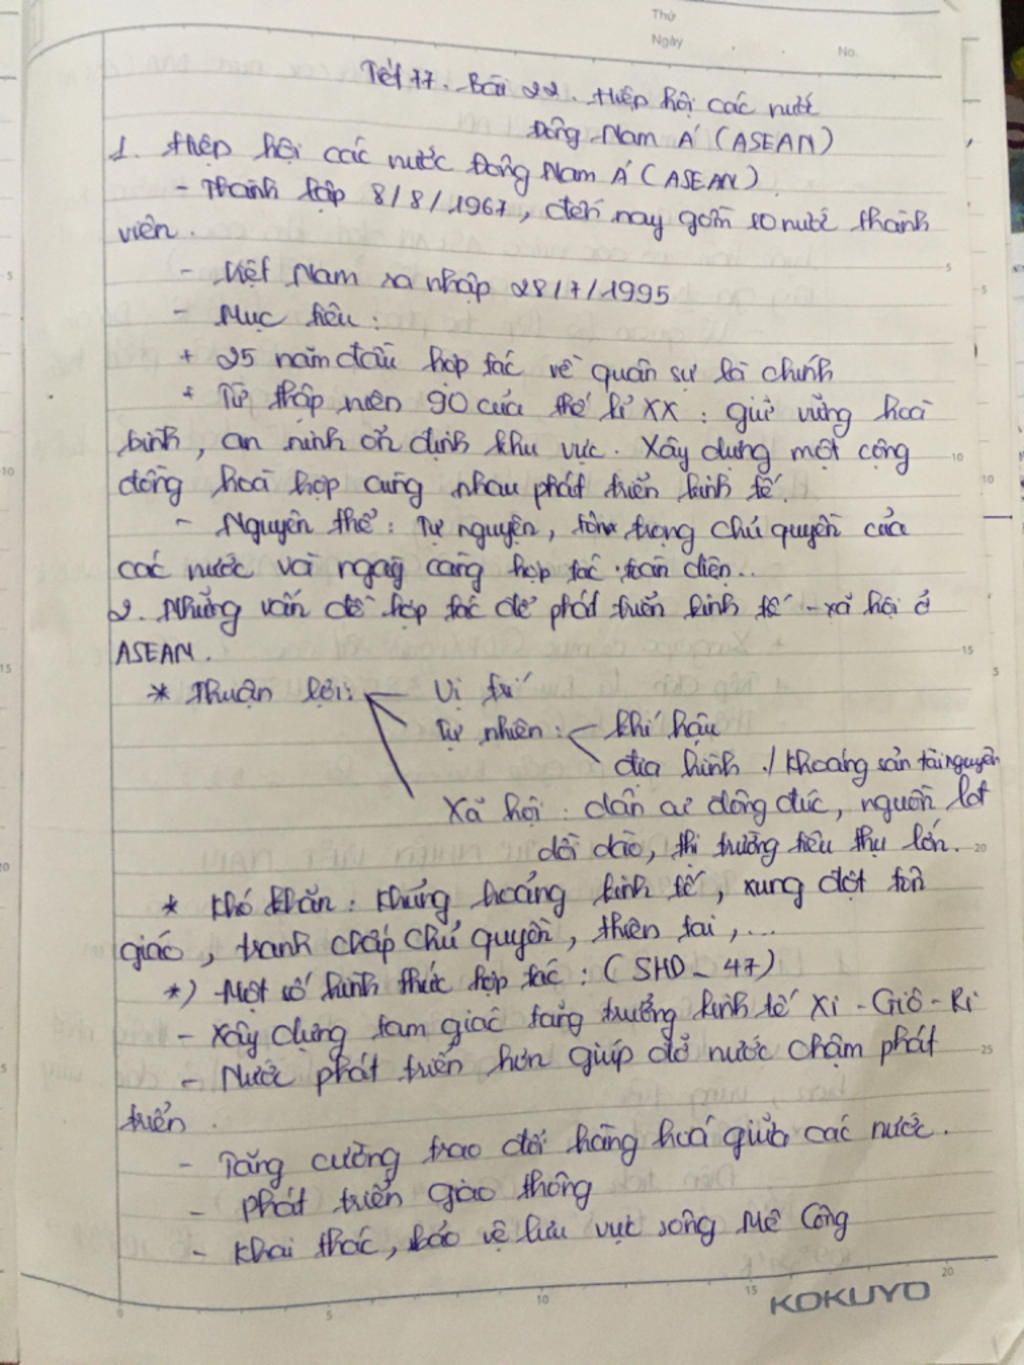 Thứ
Ngày
No.
Tiết 77. Bài 22. Hiệp hội các nước
Đông Nam Á (ASEAN)
1. Hiệp hội các nước Đông Nam Á (ASEAN).
- Thành lập 8/8/1967, đến nay gồm 10 nước thành
viên.
- Việt Nam ra nhập 28/7/1995
- Mục tiêu:
+ 25 năm đầu hợp tác về quân sự là chính
+ Từ thập niên 90 của thế kỉ XX: giữ vững hoà
bình, an ninh ổn định khu vực. Xây dựng một cộng
đồng hoà hợp cùng nhau phát triển kinh tế.
- Nguyên thể: Tự nguyện, tôn trọng chủ quyền của
các nước và ngày càng hợp tác toàn diện..
2. Những vấn đề hợp tác để phát triển kinh tế - xã hội ở
ASEAN.
* Thuận lợi: Vị trí
Tự nhiên: khí hậu
địa hình ./ khoáng sản tài nguyên
Xã hội: dân cư đông đúc, nguồn lđ
dồi dào, thị trường tiêu thụ lớn.
* Khó khăn: Khủng hoảng kinh tế, xung đột tôn
giáo, tranh chấp chủ quyền, thiên tai,...
*) Một số hình thức hợp tác: (SHD - 47)
- Xây dựng tam giác tăng trưởng kinh tế Xi - Giô - Ri
- Nước phát triển hơn giúp đỡ nước chậm phát
triển.
- Tăng cường trao đổi hàng hoá giữa các nước.
- phát triển giao thông
- Khai thác, bảo vệ lưu vực sông Mê Công
KOKUYO